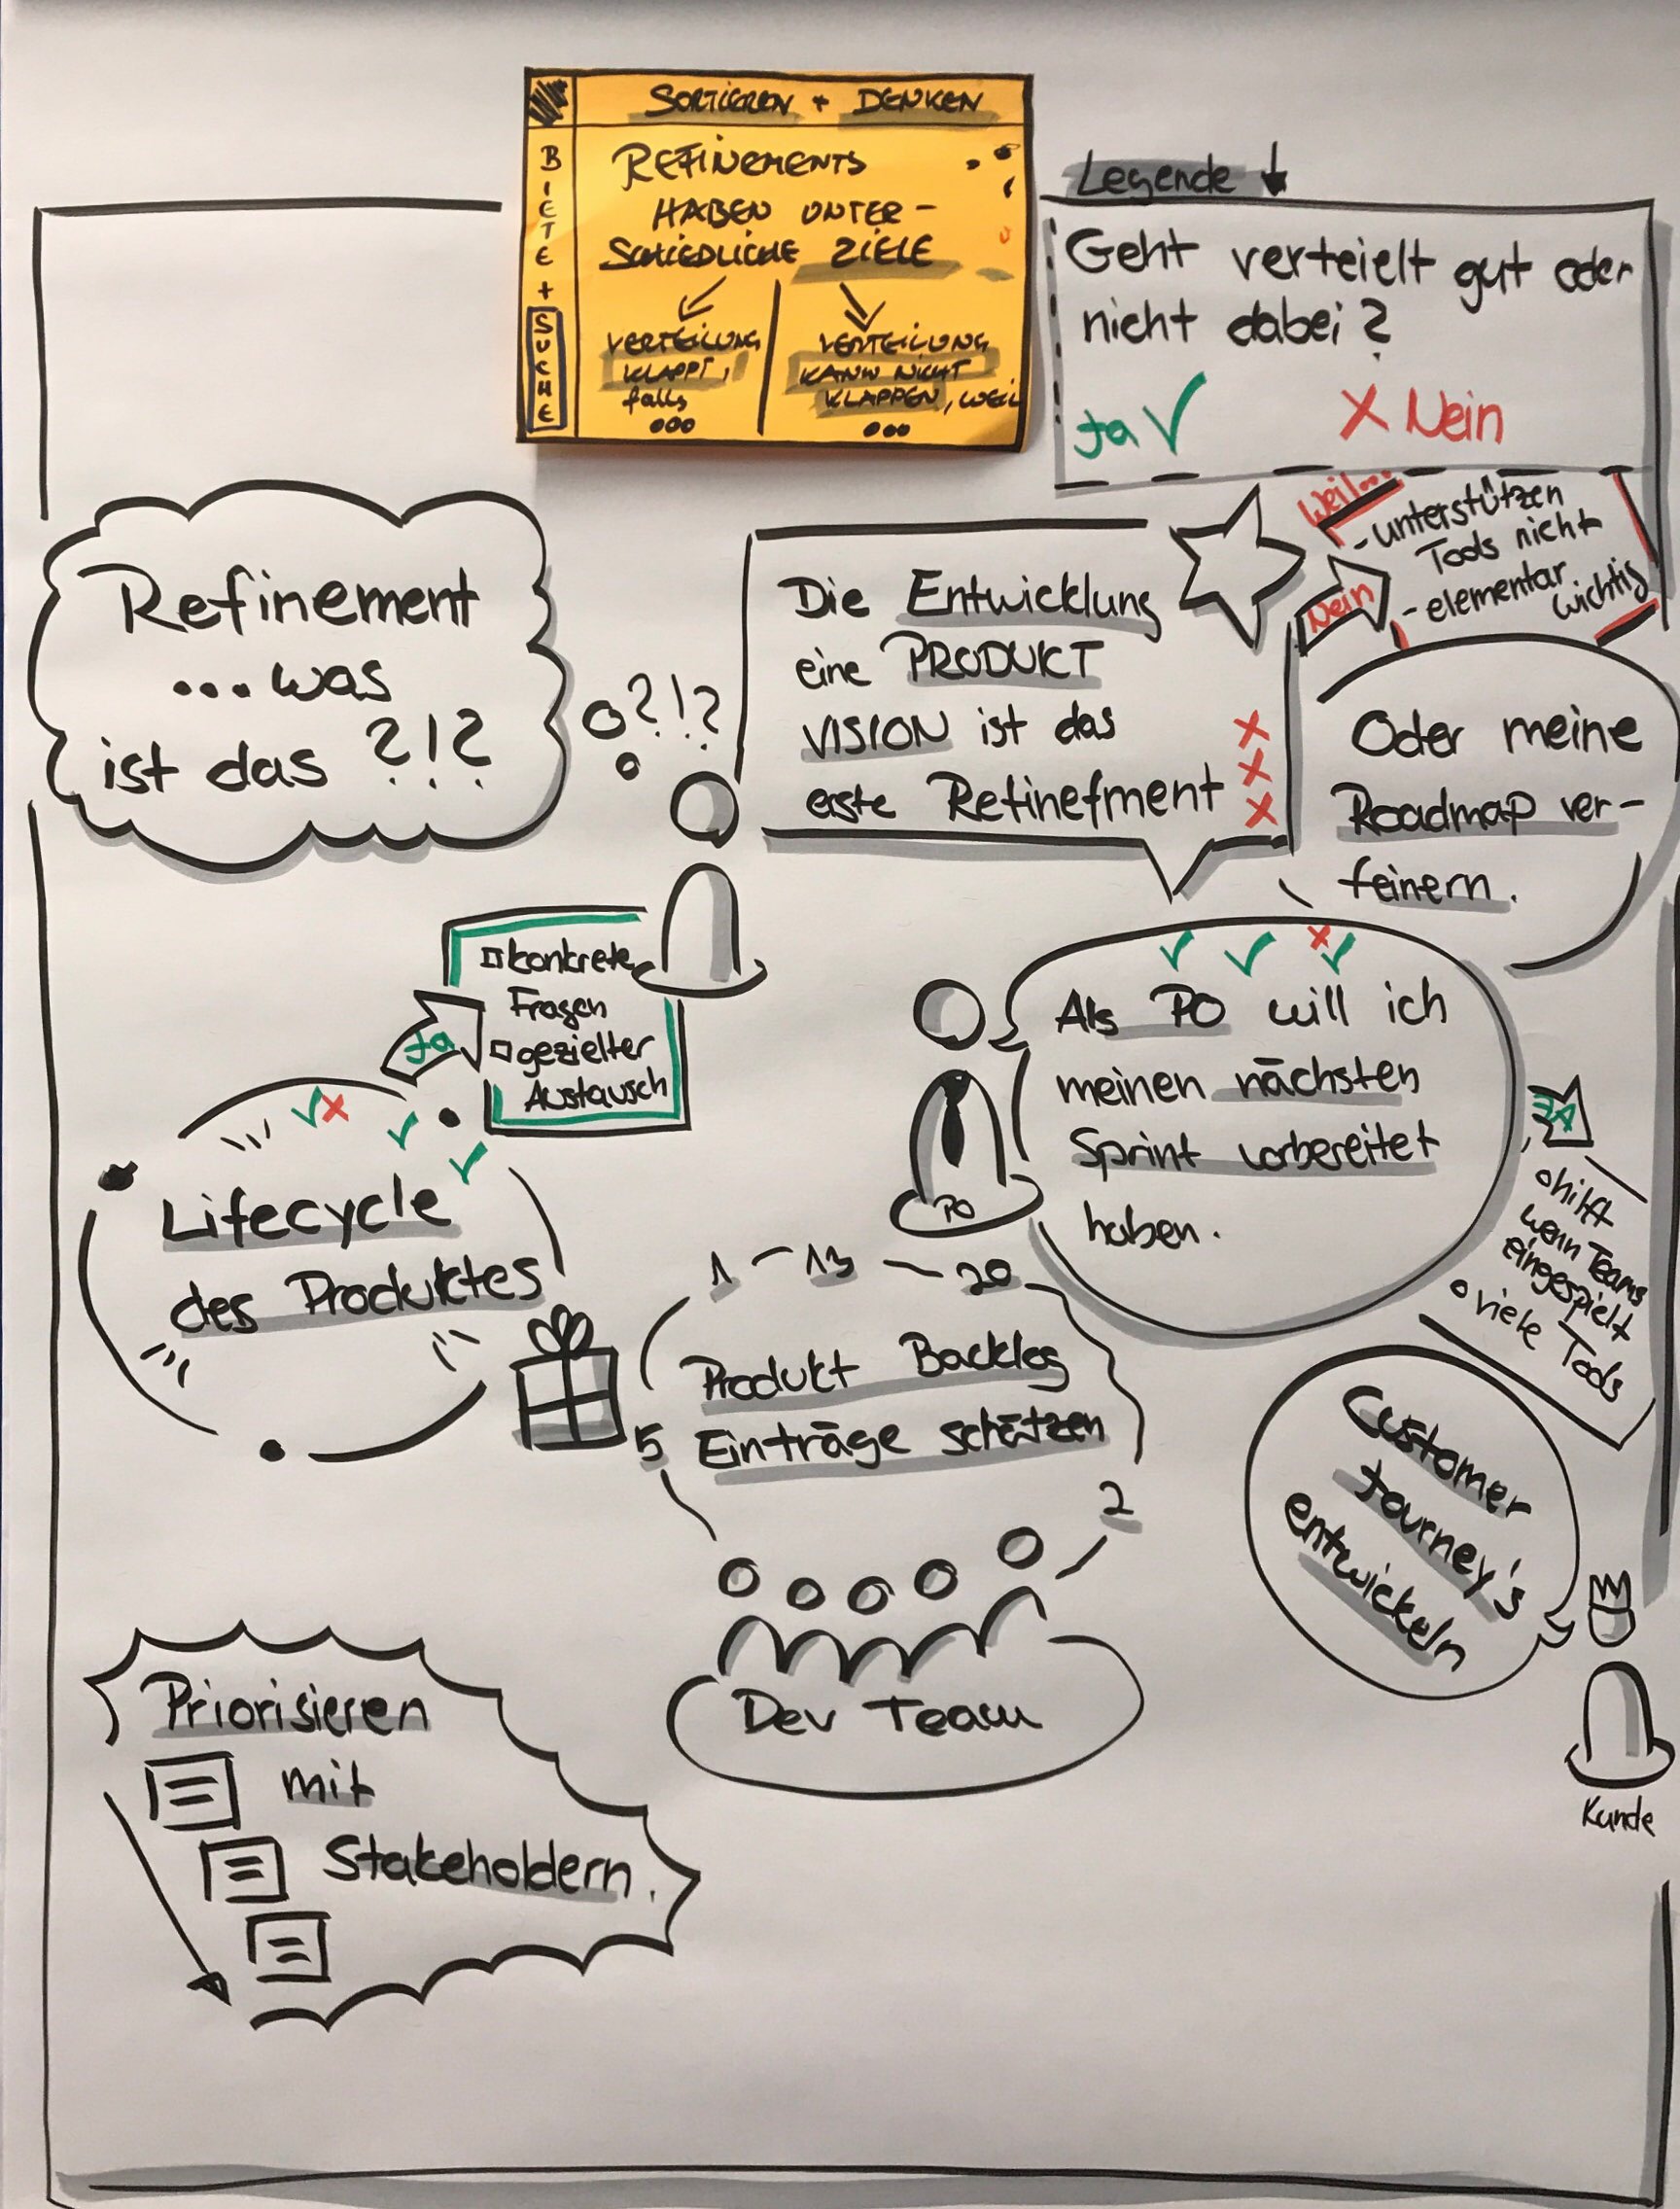 SORTIEREN + DENKEN
BIETE + SUCHE
REFINEMENTS
HABEN UNTER-
SCHIEDLICHE ZIELE
VERTEILUNG
KLAPPT,
falls
ooo
VERTEILUNG
KANN NICHT
KLAPPEN, WEIL
ooo
Legende
Geht verteielt gut oder
nicht dabei?
Ja ✓
X Nein
Refinement
... was
ist das ?!?
?!?
Die Entwicklung
eine PRODUKT
VISION ist das
erste Refinefment
X
X
X
Nein
Weil...
- unterstützen
Tools nicht
- elementar
wichtig
Oder meine
Roadmap ver-
feinern.
Ja
konkrete
Fragen
gezielter
Austausch
✓ ✓ X✓
Als PO will ich
meinen nächsten
Sprint vorbereitet
haben.
PO
JA
o hilft
wenn Teams
eingespielt
o viele Tools
✓X ✓ ✓
Lifecycle
des Produktes
1 - 13 - 20
Produkt Backlog
5 Einträge schätzen
2
Dev Team
Customer
Journey's
entwickeln
Kunde
Priorisieren
mit
Stakeholdern.